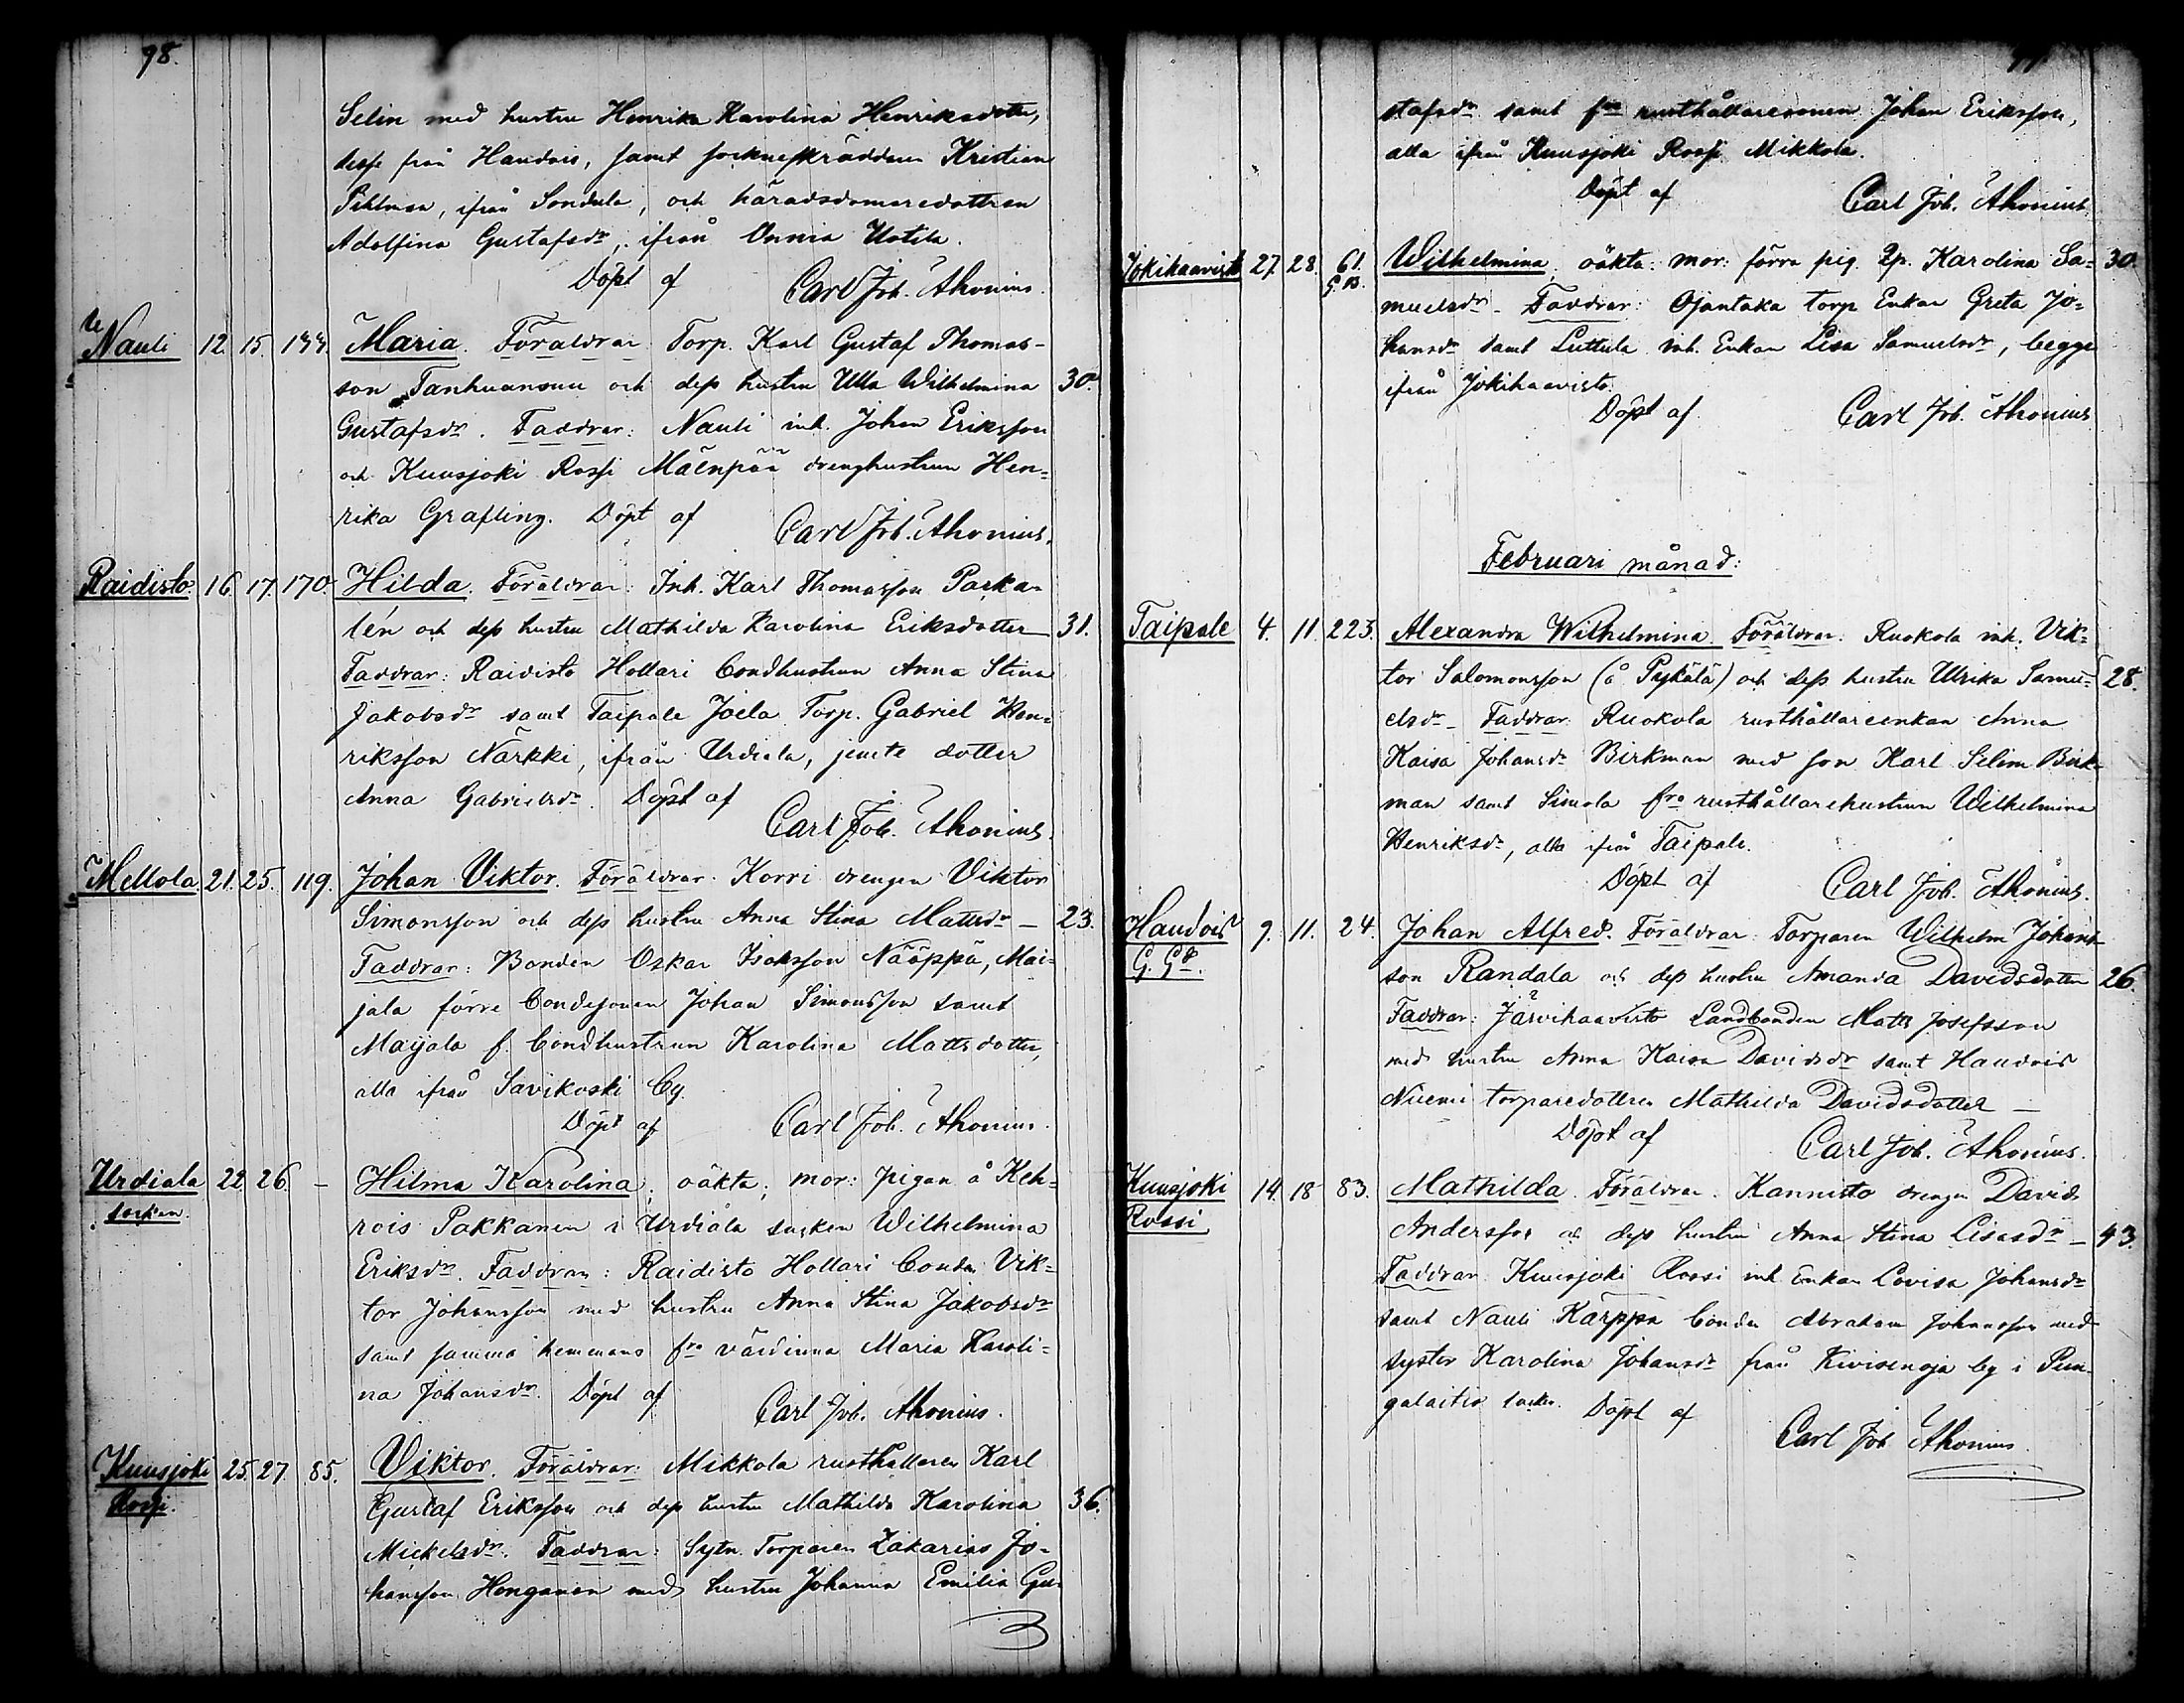 98.
Selin med hustru Henrika Karolina Henriksdotter,
desse från Haudois, samt sockneskräddaren Kristian
Pihlman, ifrån Sondula, och häradsdomaredottren
Adolfina Gustafsdr, ifrån Onnia Uotila.
Döpt af Carl Joh. Ahonius.
Nauli 12. 15. 144. Maria. Föräldrar: Torp. Karl Gustaf Thomas-
son Tanhuansuu och dess hustru Ulla Wilhelmina 30.
Gustafsdr. Faddrar: Nauli inh. Johan Eriksson
och Kuusjoki Rossi Mäenpää drenghustrun Hen=
rika Grafling. Döpt af Carl Joh. Ahonius.
Raidisto 16. 17. 170. Hilda. Föräldrar: Inh. Karl Thomasson Parka-
lén och dess hustru Mathilda Karolina Eriksdotter 31.
Faddrar: Raidisto Hollari bondhustrun Anna Stina
Jakobsdr samt Taipale Joela Torp. Gabriel Hen=
riksson Närkki, ifrån Urdiala, jemte dotter
Anna Gabrielsdr. Döpt af
Carl Joh. Ahonius.
Mellola 21. 25. 119. Johan Viktor. Föräldrar: Korri drengen Viktor
Simonsson och dess hustru Anna Stina Mattsdr — 23.
Faddrar: Bonden Oskar Isaksson Nääppä, Mai=
jala förre bondesonen Johan Simonsson samt
Maijala f. bondhustrun Karolina Mattsdotter,
alla ifrån Savikoski by.
Döpt af Carl Joh. Ahonius.
Urdiala 22. 26. – Hilma Karolina; oäkta; mor: pigan å Keh=
socken. rois Pakkanen i Urdiala socken Wilhelmina
Eriksdr. Faddrar: Raidisto Hollari bonden Vik=
tor Johansson med hustru Anna Stina Jakobsdr
samt samma hemmans fra värdinna Maria Karoli=
na Johansdr. Döpt af Carl Joh. Ahonius.
Kuusjoki 25. 27. 85. Viktor. Föräldrar: Mikkola rusthållaren Karl
Rossi. Gustaf Eriksson och dess hustru Mathilda Karolina 36.
Mickelsdr. Faddrar: Sytn. Torparen Zakarias Jo=
hansson Honganen med hustru Johanna Emilia Gu-
stafsdr samt fra rusthållaresonen Johan Eriksson,
alla ifrån Kuusjoki Rossi Mikkola.
Döpt af Carl Joh. Ahonius.
Jokihaavisto 27. 28. 61. Wilhelmina. oäkta: mor: förra pig. Karolina Sa= 30.
muelsdr. Faddrar: Ojantaka torp Enkan Greta Jo=
hansdr samt Luttula inh. Enkan Lisa Samuelsdr, begge
ifrån Jokihaavisto.
Döpt af Carl Joh. Ahonius
Februari månad:
Taipale 4. 11. 223. Alexandra Wilhelmina. Föräldrar: Ruokola inh. Vik=
tor Salomonsson (å Pykälä) och dess hustru Ulrika Samu= 28.
elsdr. Faddrar: Ruokola rusthållareenkan Anna
Kaisa Johansdr Birkman med son Karl Selim Birk-
man samt Simola fra rusthållarehustrun Wilhelmina
Henriksdr, alla ifrån Taipale.
Döpt af Carl Joh. Ahonius.
Haudois 9. 11. 24. Johan Alfred. Föräldrar: Torparen Wilhelm Johans-
G. Gd. son Randala och dess hustru Amanda Davidsdotter 26.
Faddrar: Järvihaavisto Landbonden Matts Josefsson
med hustru Anna Kaisa Davidsdr samt Haudois
Niemi torparedottren Mathilda Davidsdotter —
Döpt af Carl Joh. Ahonius.
Kuusjoki 14. 18. 83. Mathilda. Föräldrar: Kannisto drengen David
Rossi Andersson och dess hustru Anna Stina Lisasdr — 43.
Faddrar: Kuusjoki Rossi inh. Enkan Lovisa Johansdr
samt Nauli Karppa bonden Abraham Johansson med
syster Karolina Johansdr från Kivisenoja by i Pun-
galaitio socken. Döpt af
Carl Joh. Ahonius.